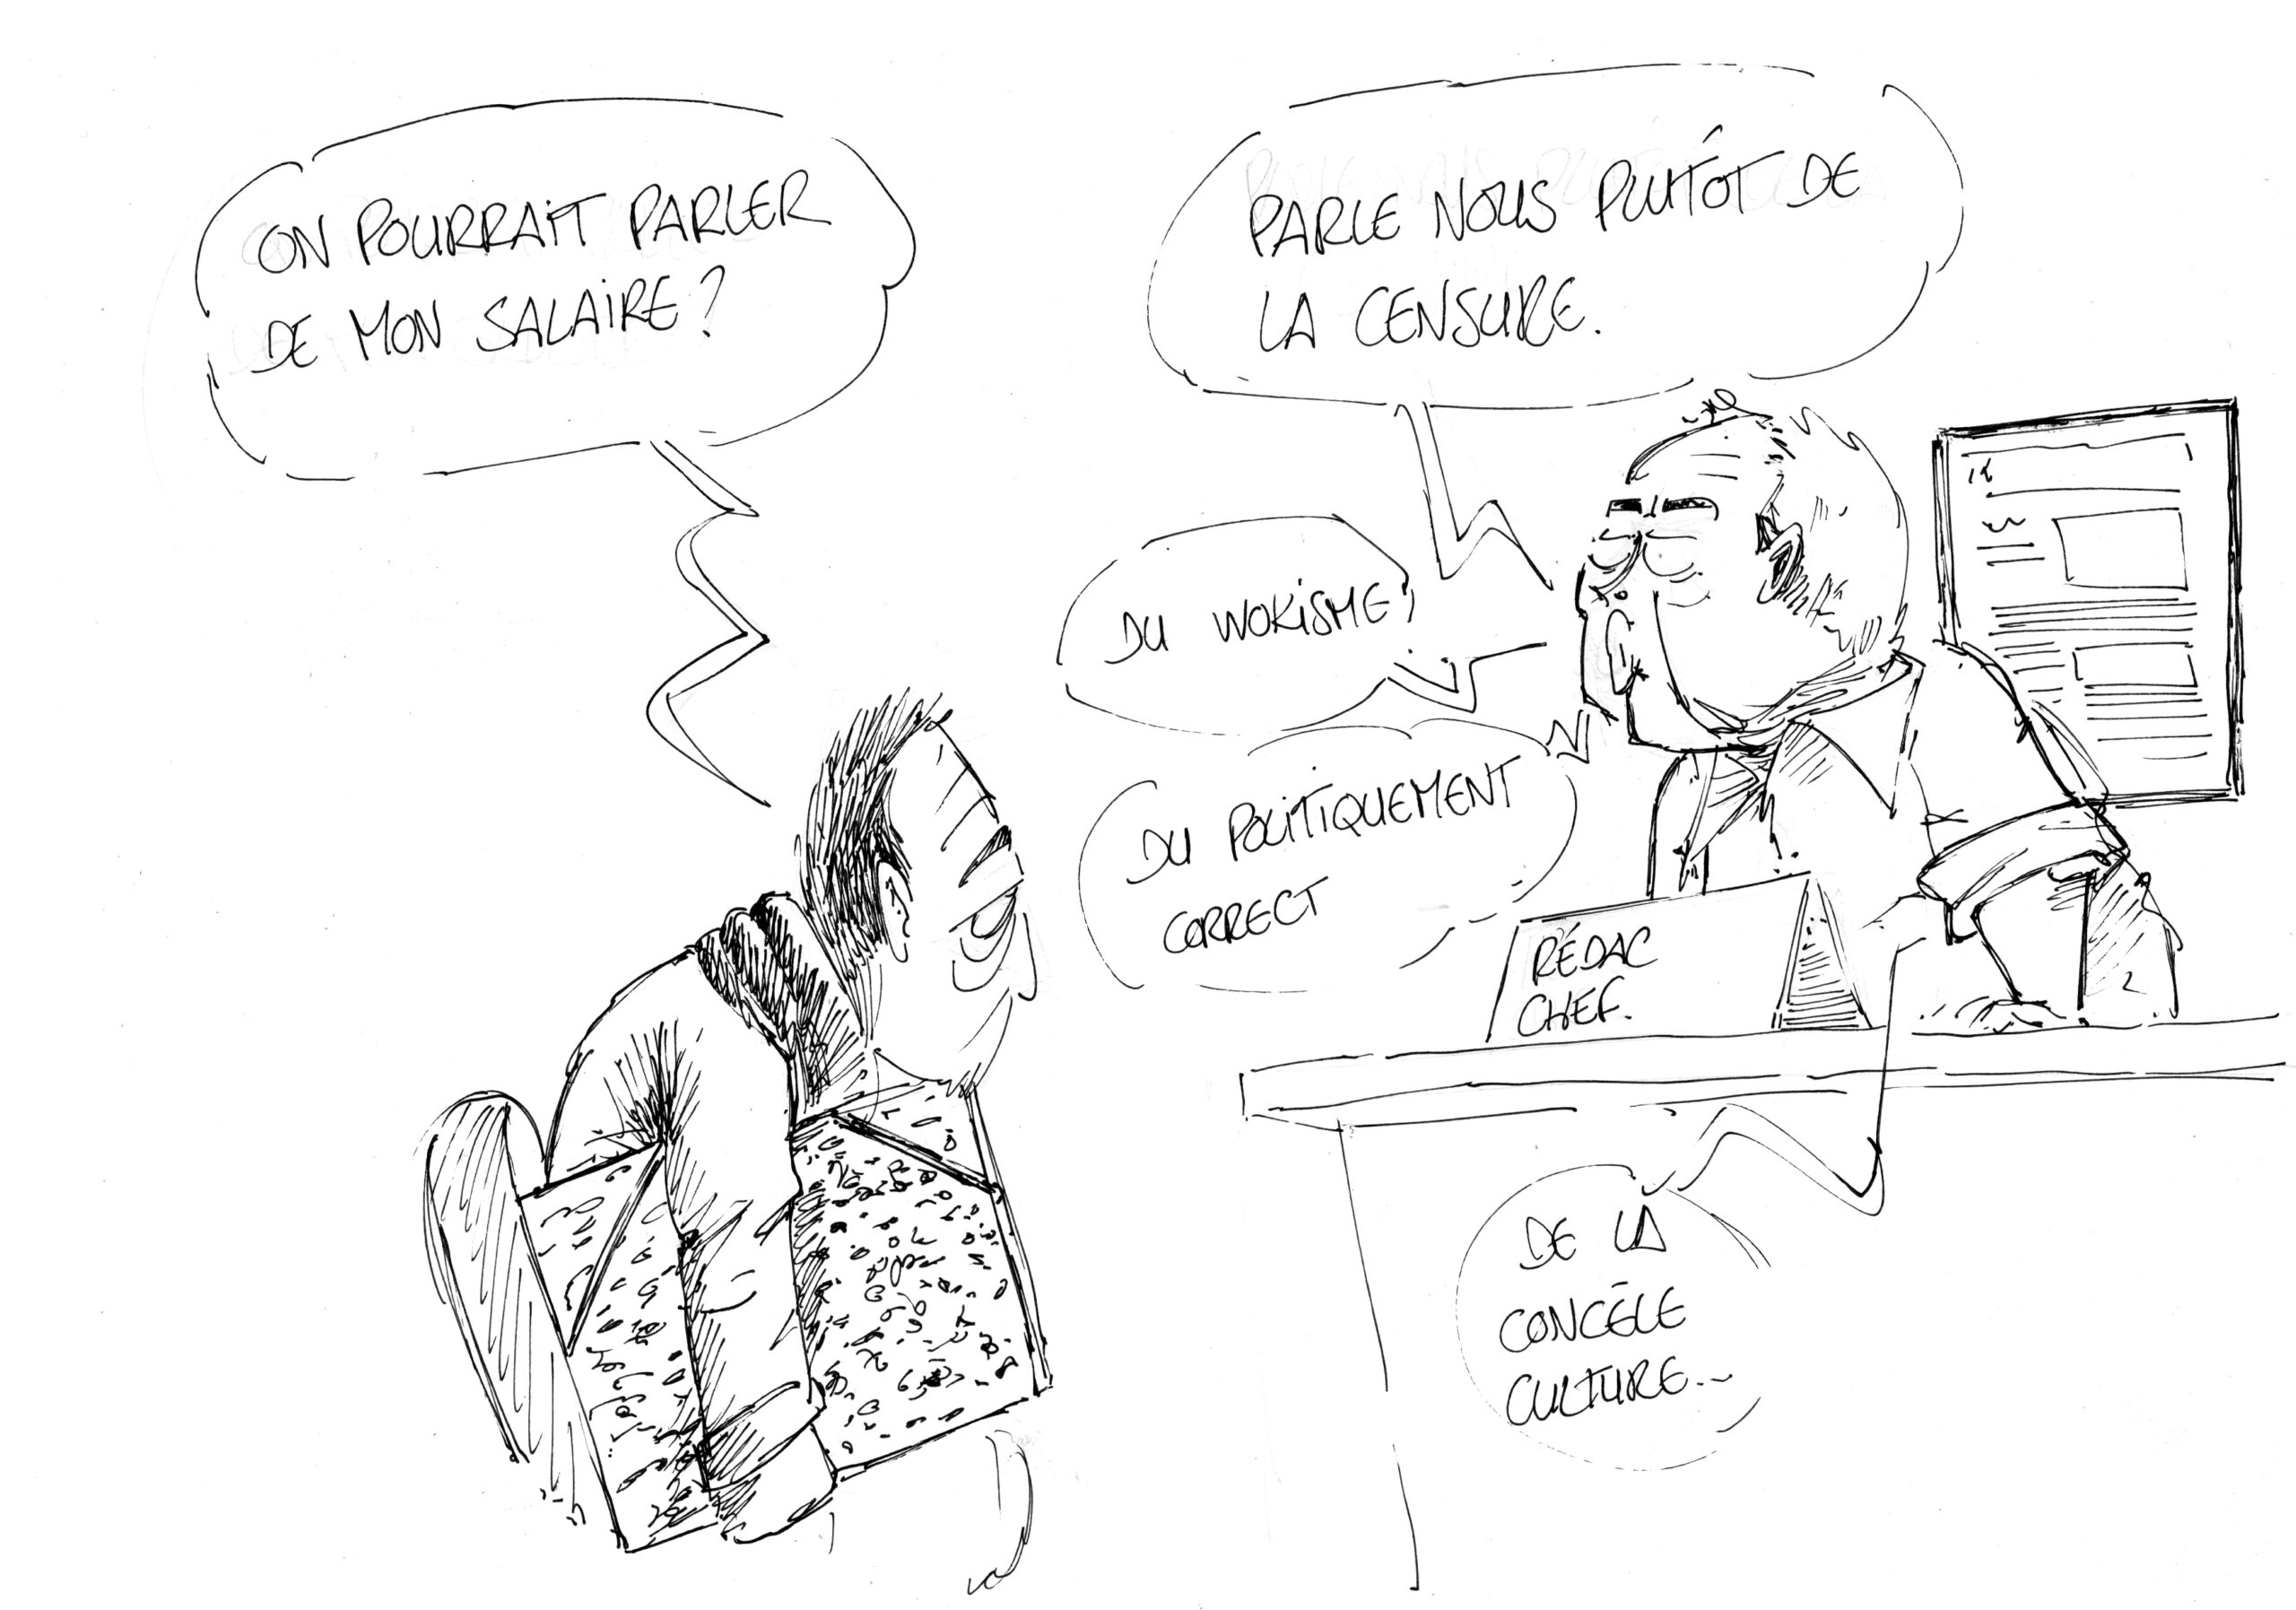 ON POURRAIT PARLER
DE MON SALAIRE?
PARLE NOUS PLUTÔT DE
LA CENSURE.
DU WOKISME,
DU POLITIQUEMENT
CORRECT
RÉDAC
CHEF.
DE LA
CONCÈLE
CULTURE...